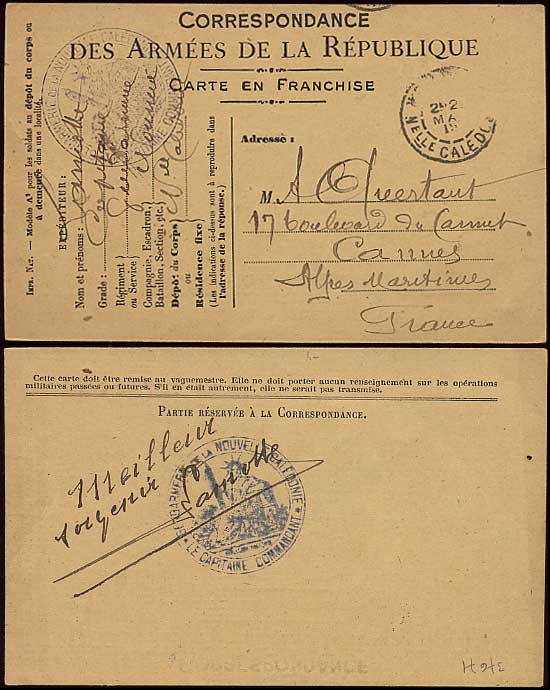 CORRESPONDANCE
DES ARMÉES DE LA RÉPUBLIQUE
CARTE EN FRANCHISE
NELLE CALEDO
Adresse :
M. A
17 boulevard du Cannet
Cannes
Alpes Maritimes
France
IMP. NAT. — Modèle A¹ pour les soldats au dépôt du corps ou
à demeure dans une localité.
EXPÉDITEUR :
Nom et prénoms : Lamotte
Grade : Capitaine
Régiment
ou Service) Gendarmerie
Compagnie, Escadron,
Batallon, Section, etc.) Nouméa
Dépôt du Corps
ou
Résidence fixe) Nlle
(Les indications ci-dessus sont à reproduire dans
l'adresse de la réponse.)
Cette carte doit être remise au vaguemestre. Elle ne doit porter aucun renseignement sur les opérations
militaires passées ou futures. S'il en était autrement, elle ne serait pas transmise.
PARTIE RÉSERVÉE À LA CORRESPONDANCE.
Meilleur
souvenir
Lamotte
GENDARMERIE DE LA NOUVELLE CALEDONIE
* LE CAPITAINE COMMANDANT *